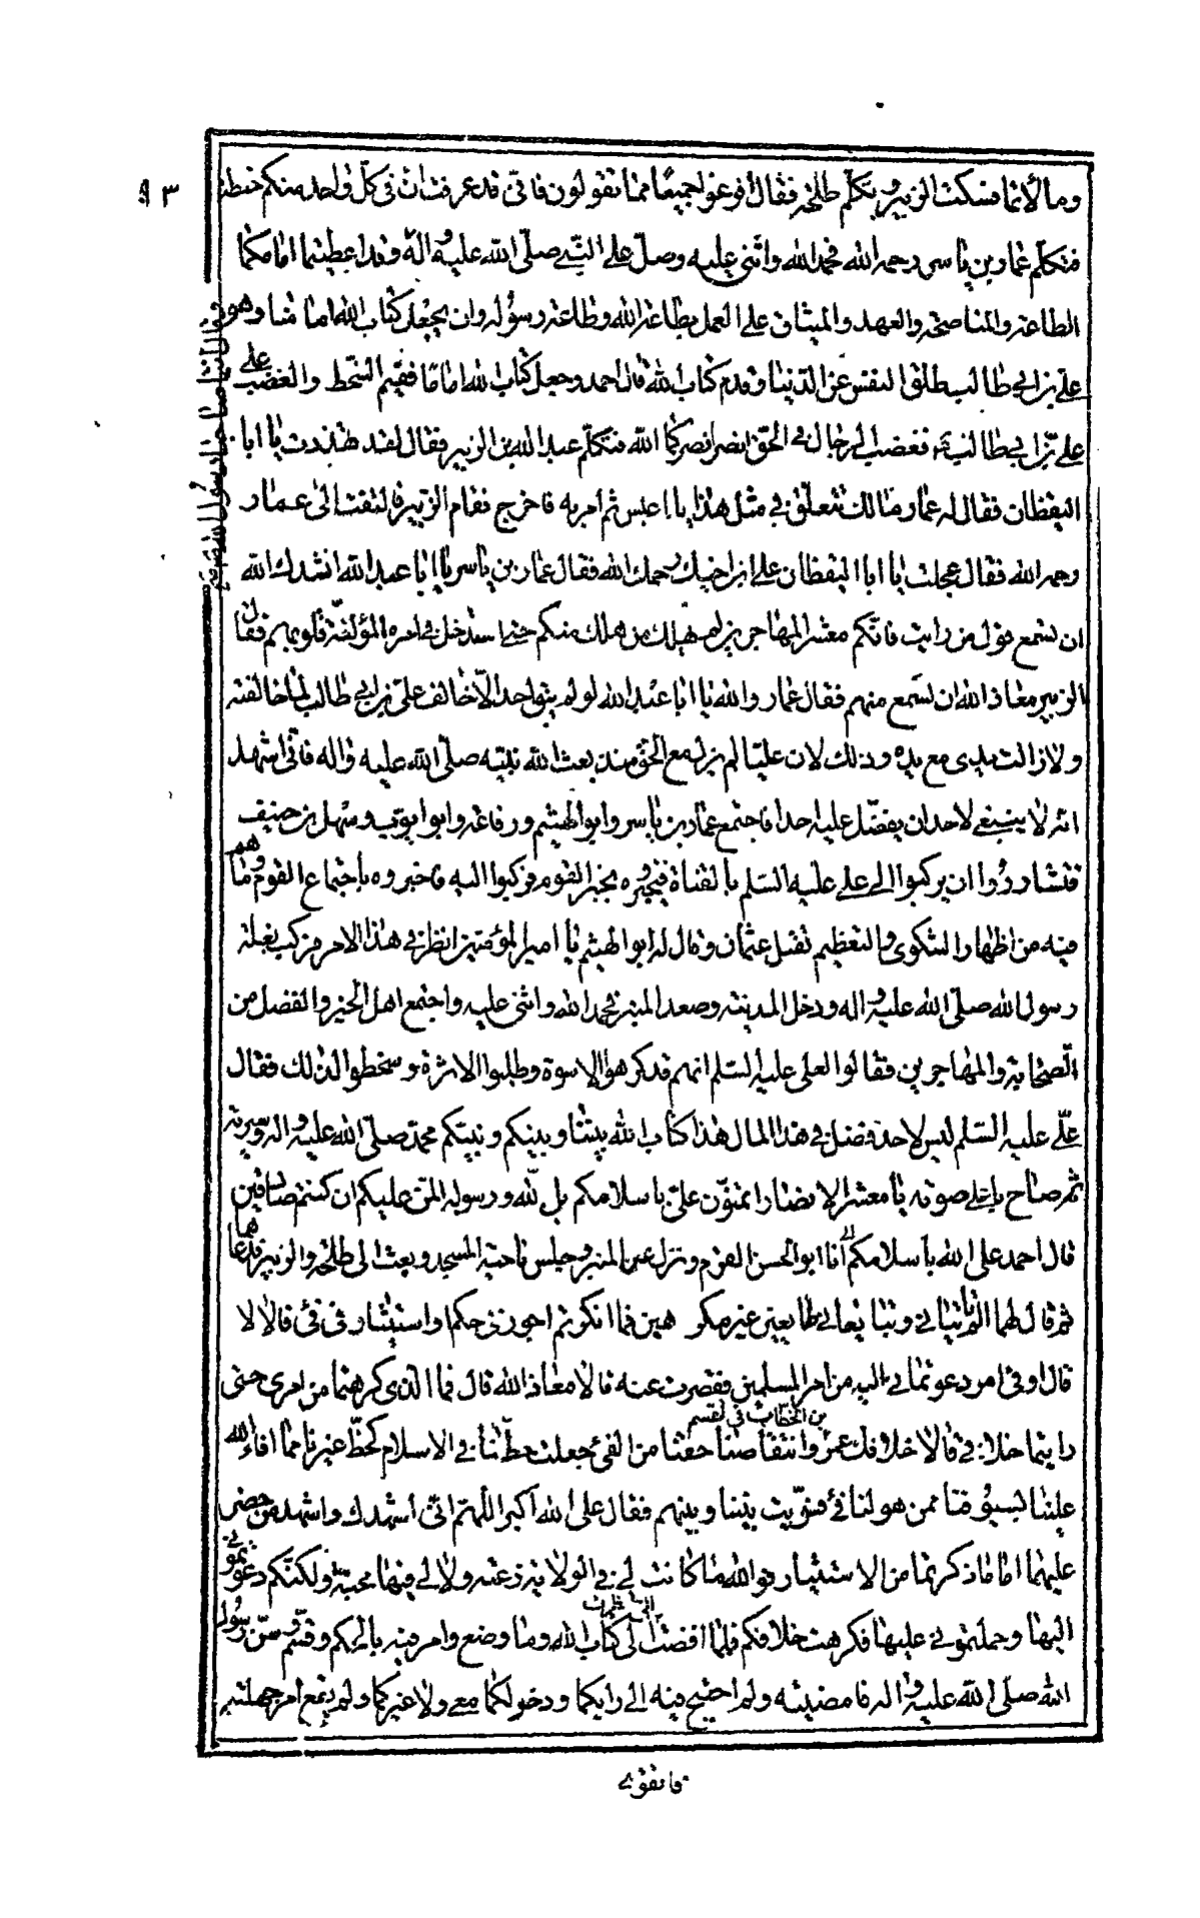 ٩٣
وما لأنما فسكت الزبير وتكلم طلحة فقال أفرغوا جميعا مما تقولون فاني قد عرفت ان في كل واحد منكم خطبة
فتكلم عمار بن ياسر رحمه الله فحمد الله واثنى عليه وصلى على النبي صلى الله عليه وآله وقد اعطيتما امامكما
الطاعة والمناصحة والعهد والميثاق على العمل بطاعة الله وطاعة رسوله وان يجعل كتاب الله اماما وهو
علي بن ابي طالب طلق النفس عن الدنيا وقدم كتاب الله قال احمد وجعل كتاب الله اماما ففيم السخط والغضب على
علي بن ابي طالب فغضب الرجال في الحق انصرا نصركما الله فتكلم عبد الله بن الزبير فقال لقد تهذرت يا ابا
اليقظان فقال له عمار مالك تتعلق في مثل هذا يا اعبس ثم امر به فاخرج فقام الزبير فالتفت الى عمار
رحمه الله فقال عجلت يا ابا اليقظان على ابن اخيك رحمك الله فقال عمار بن ياسر يا ابا عبد الله انشدك الله
ان تسمع قول من رايت فانكم معشر المهاجرين لم يهلك من هلك منكم حتى استدخل في امره المؤلفة قلوبهم فقال
الزبير معاذ الله ان نسمع منهم فقال عمار والله يا ابا عبد الله لو لم يبق احد الا خالف علي بن ابي طالب لما خالفته
ولا زالت يدي مع يده وذلك لان عليا لم يزل مع الحق منذ بعث الله نبيه صلى الله عليه واله فاني اشهد
انه لا ينبغي لاحد ان يفضل عليه احدا فاجتمع عمار بن ياسر وابو الهيثم ورفاعة وابو ايوب وسهل بن حنيف
فتشاوروا ان يركبوا الى علي عليه السلم بالقناة فيخبروه بخبر القوم فركبوا اليه فاخبروه باجتماع القوم وما هم
فيه من اظهار الشكوى والتعظيم لقتل عثمان وقال له ابو الهيثم يا امير المؤمنين انظر في هذا الامر فركب بغلة
رسول الله صلى الله عليه واله ودخل المدينة وصعد المنبر فحمد الله واثنى عليه واجتمع اهل الخير والفضل من
الصحابة والمهاجرين فقالوا لعلي عليه السلم انهم قد كرهوا الاسوة وطلبوا الاثرة وسخطوا لذلك فقال
علي عليه السلم ليس لاحد فضل في هذا المال هذا كتاب الله بيننا وبينكم ونبيكم محمد صلى الله عليه واله وسيرته
ثم صاح باعلى صوته يا معشر الانصار اتمنون علي باسلامكم بل لله ورسوله المن عليكم ان كنتم صادقين
قال احمد على الله باسلامكم انا ابو الحسن القرم ونزل عن المنبر وجلس ناحية المسجد وبعث الى طلحة والزبير فدعاهما
ثم قال لهما الم تاتياني وتبايعاني طائعين غير مكرهين فما انكرتم اجور في حكم او استيثار في فئ قالا لا
قال او في امر دعوتماني اليه من امر المسلمين فقصرت عنه قالا معاذ الله قال فما الذي كرهتما من امري حتى
رايتما خلافي قالا خلافك عمر بن الخطاب في القسم وانتقاصنا حقنا من الفئ جعلت حظنا في الاسلام كحظ غيرنا مما افاء الله
علينا بسيوفنا ممن هو لنا فئ فسويت بيننا وبينهم فقال علي الله اكبر اللهم اني اشهدك واشهد من حضر
عليهما اما ما ذكرتما من الاستيثار فوالله ما كانت لي في الولاية رغبة ولا لي فيها محبة ولكنكم دعوتموني
اليها وحملتموني عليها فكرهت خلافكم فلما افضت الي نظرت الى كتاب الله وما وضع وامر فيه بالحكم وقسم وسن رسول
الله صلى الله عليه واله فامضيته ولم احتج فيه الى رايكما ودخولكما معي ولا غيركما ولم يقع امر جهلته
فاتقوى